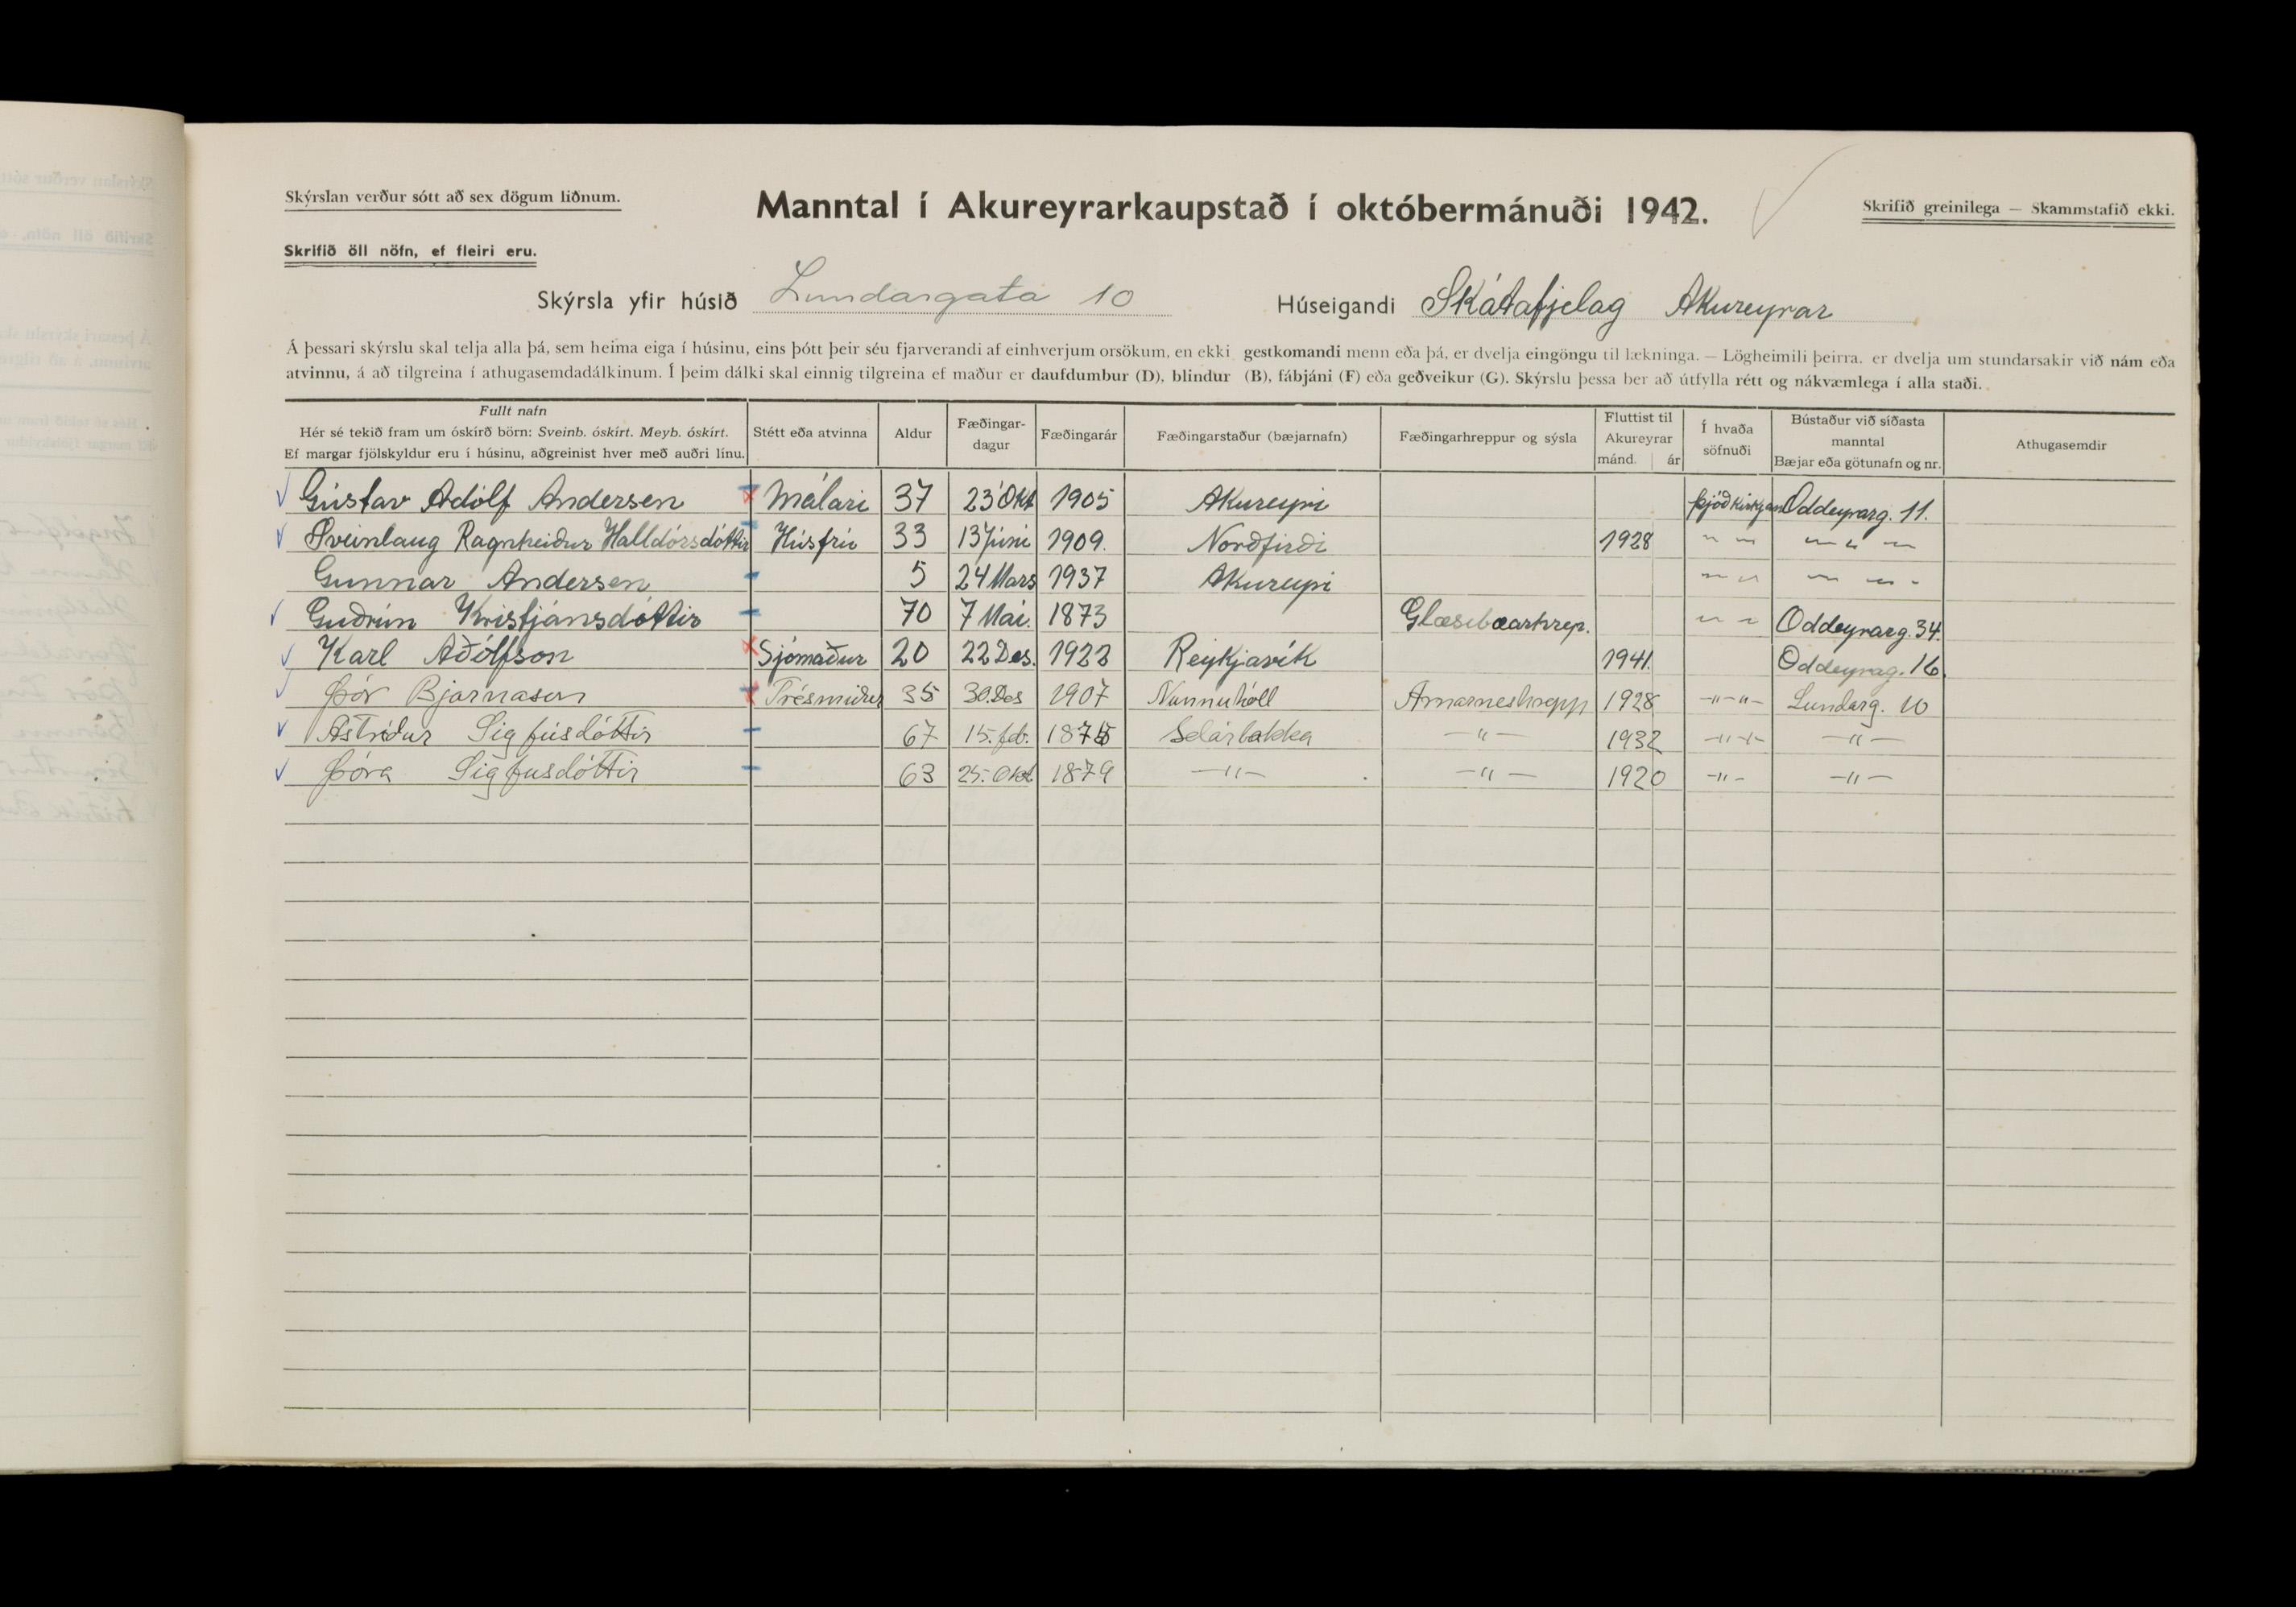 Skýrslan verður sótt að sex dögum liðnum.
Manntal í Akureyrarkaupstað í októbermánuði 1942.
Skrifið greinilega — Skammstafið ekki.
Skrifið öll nöfn, ef fleiri eru.
Skýrsla yfir húsið Lundargata 10 Húseigandi Skátafjelag Akureyrar
Á þessari skýrslu skal telja alla þá, sem heima eiga í húsinu, eins þótt þeir séu fjarverandi af einhverjum orsökum, en ekki gestkomandi menn eða þá, er dvelja eingöngu til lækninga. — Lögheimili þeirra, er dvelja um stundarsakir við nám eða
atvinnu, á að tilgreina í athugasemdadálkinum. Í þeim dálki skal einnig tilgreina ef maður er daufdumbur (D), blindur (B), fábjáni (F) eða geðveikur (G). Skýrslu þessa ber að útfylla rétt og nákvæmlega í alla staði.
Fullt nafn
Hér sé tekið fram um óskírð börn: Sveinb. óskírt. Meyb. óskírt.
Ef margar fjölskyldur eru í húsinu, aðgreinist hver með auðri línu.
Stétt eða atvinna
Aldur
Fæðingar-
dagur
Fæðingarár
Fæðingarstaður (bæjarnafn)
Fæðingarhreppur og sýsla
Fluttist til
Akureyrar
mánd. ár
Í hvaða
söfnuði
Bústaður við síðasta
manntal
Bæjar eða götunafn og nr.
Athugasemdir
Gústav Adólf Andersen Málari 37 23 Okt 1905 Akureyri Oddeyrarg. 11.
Sveinlaug Ragnheiður Halldórsdóttir Húsfrú 33 13 Júní 1909. Norðfirði 1928 " " " " "
Gunnar Andersen 5 24 Mars 1937 Akureyri " " " " "
Guðrún Kristjánsdóttir 70 7 Maí. 1873 Glæsibæarhrep. " " Oddeyrarg. 34.
Karl Aðólfson Sjómaður 20 22 Des. 1922 Reykjavík 1941. Oddeyrag. 16.
Þór Bjarnason Trésmiður 35 30. Des 1907 Nunnuhóll Arnarneshrepp 1928 —"—"— Lundarg. 10
Ástríður Sigfúsdóttir 67 15. feb. 1875 Selárbakka —"— 1932 —"—"— —"—
Þóra Sigfúsdóttir 63 25. Okt 1879 —"— —"— 1920 —"— —"—